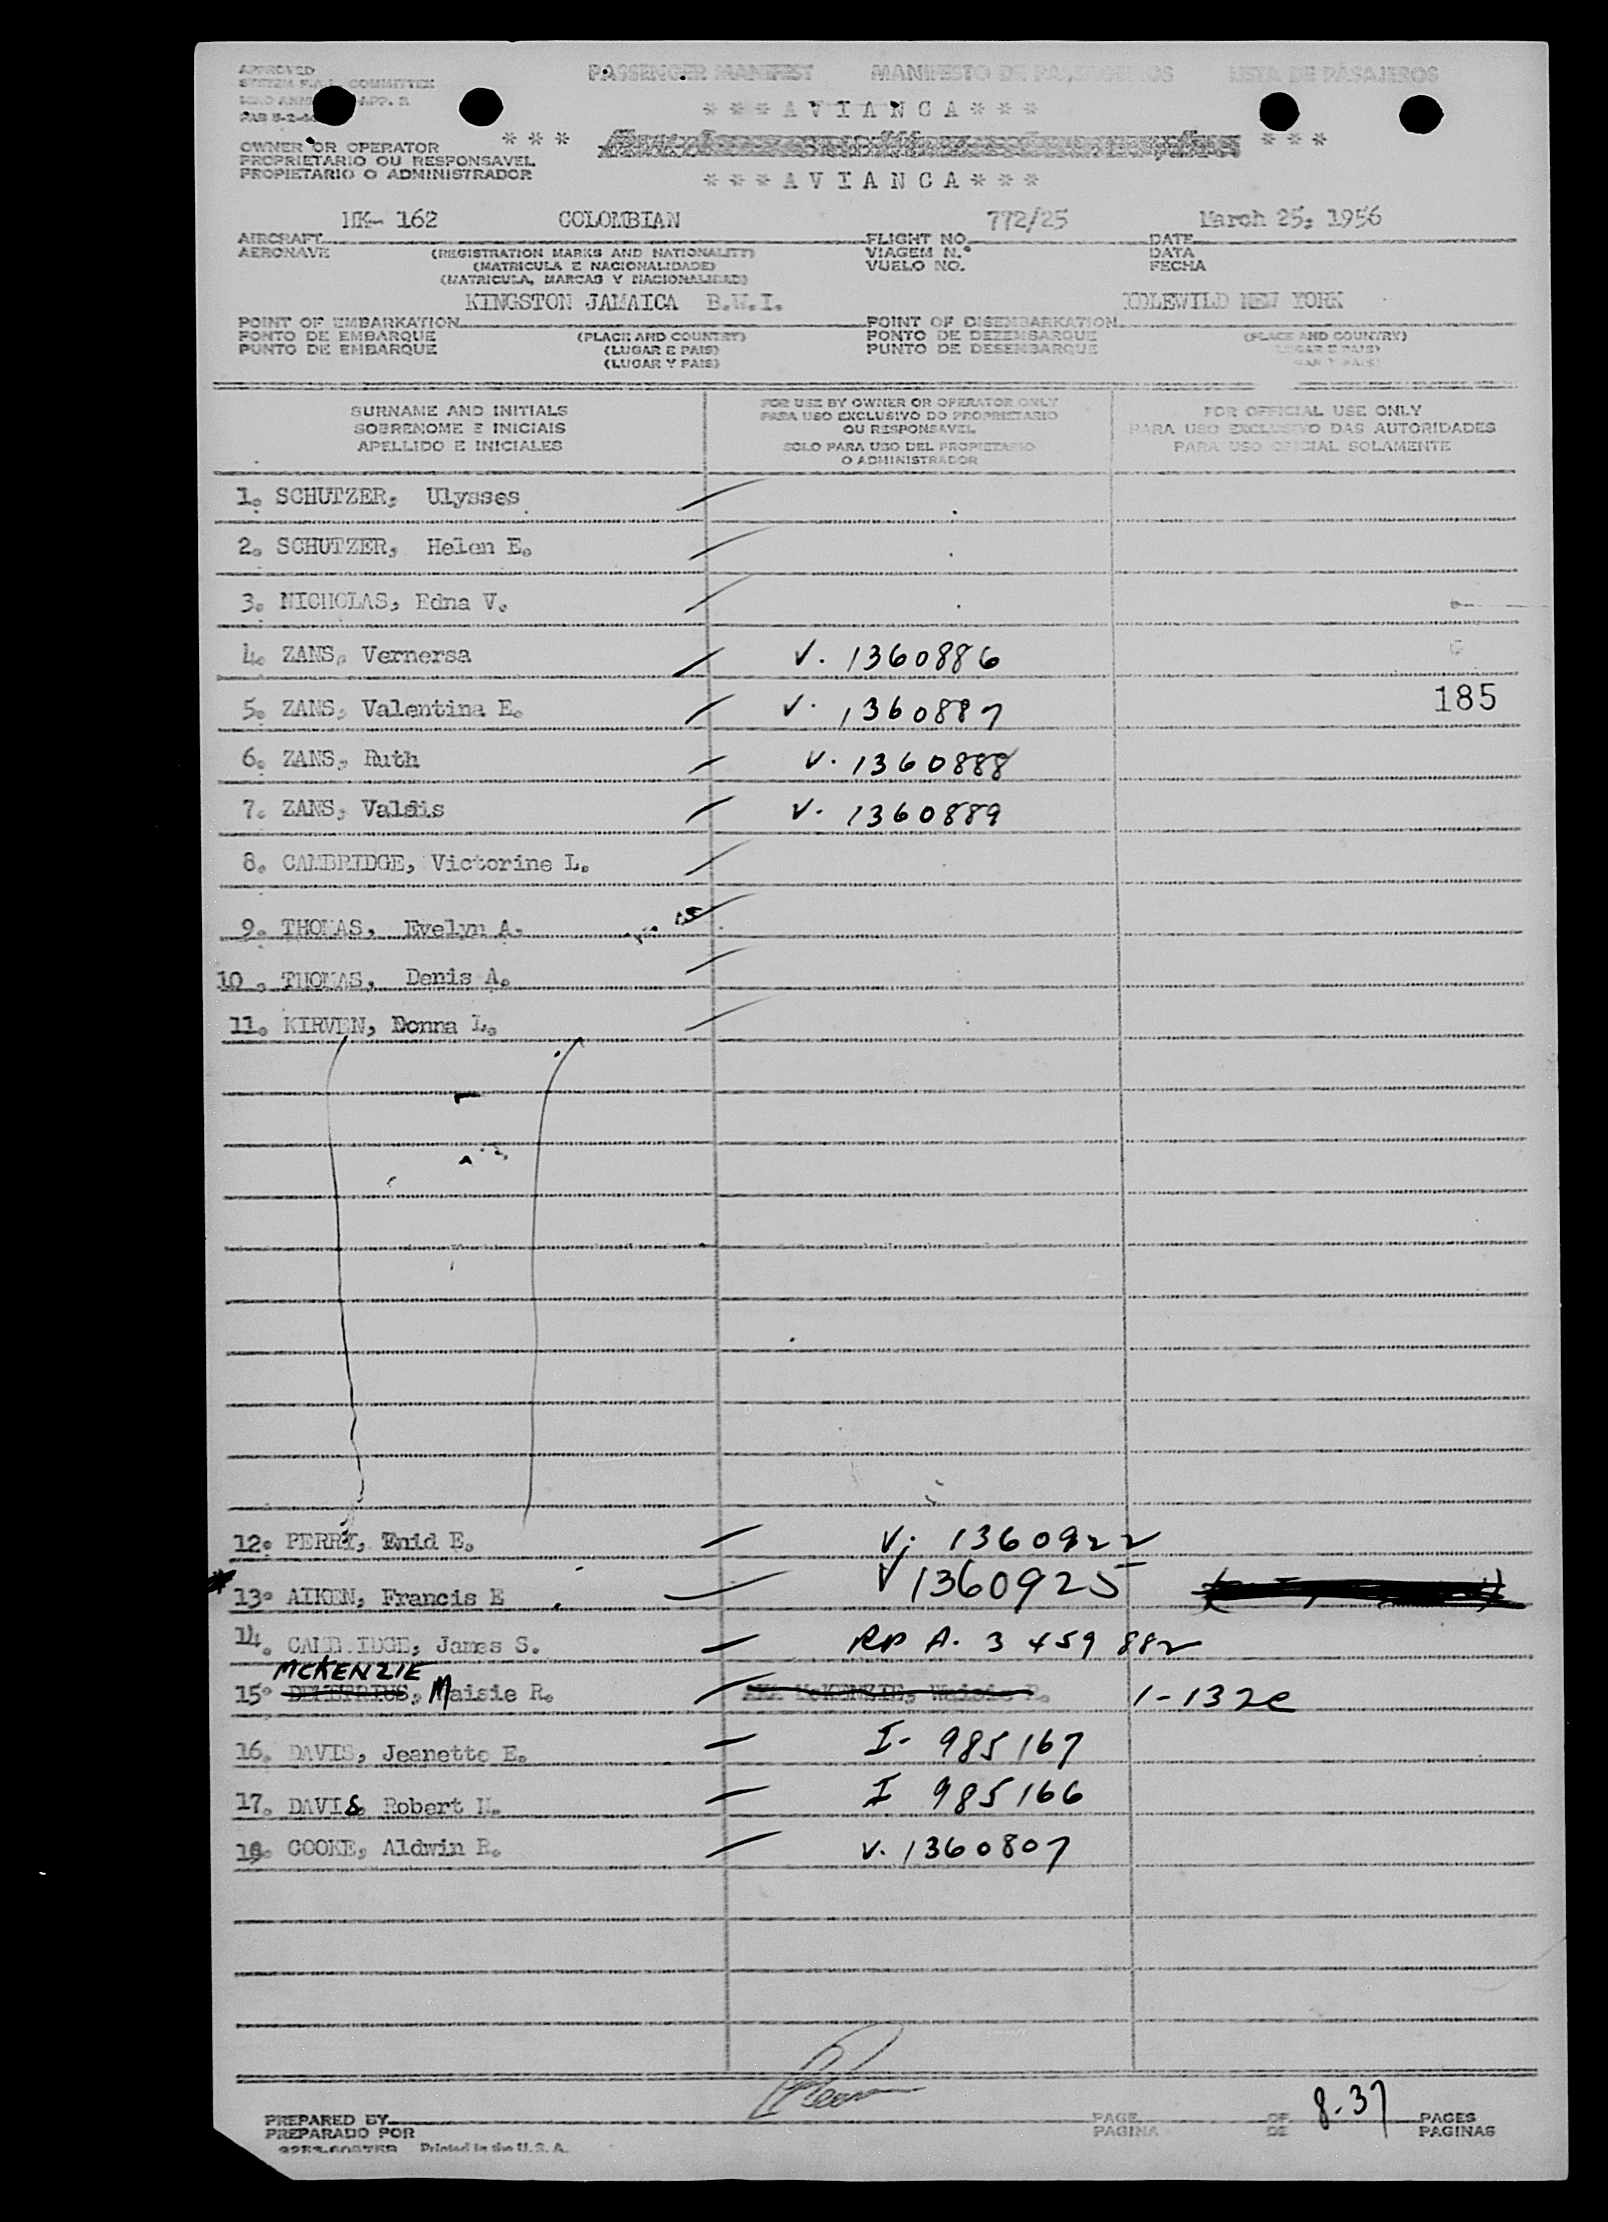 APPROVED
SYSTEM F.A.L. COMMITTEE
APP. R
PAB 5-2-
PASSENGER MANIFEST MANIFESTO DE PASSAGEIROS LISTA DE PASAJEROS
* * * A V I A N C A * * *
OWNER OR OPERATOR * * * * * *
PROPRIETARIO OU RESPONSAVEL
PROPIETARIO O ADMINISTRADOR
* * * A V I A N C A * * *
HK- 162 COLOMBIAN 772/25 March 25, 1956
AIRCRAFT FLIGHT NO. DATE
AERONAVE (REGISTRATION MARKS AND NATIONALITY) VIAGEM N.° DATA
(MATRICULA E NACIONALIDADE) VUELO NO. FECHA
(MATRICULA, MARCAS Y NACIONALIDAD)
KINGSTON JAMAICA B.W.I. IDLEWILD NEW YORK
POINT OF EMBARKATION POINT OF DISEMBARKATION
PONTO DE EMBARQUE (PLACE AND COUNTRY) PONTO DE DEZEMBARQUE (PLACE AND COUNTRY)
PUNTO DE EMBARQUE (LUGAR E PAIS) PUNTO DE DESEMBARQUE (LUGAR E PAIS)
(LUGAR Y PAIS) (LUGAR Y PAIS)
SURNAME AND INITIALS
SOBRENOME E INICIAIS
APELLIDO E INICIALES
FOR USE BY OWNER OR OPERATOR ONLY
PARA USO EXCLUSIVO DO PROPRIETARIO
OU RESPONSAVEL
SOLO PARA USO DEL PROPIETARIO
O ADMINISTRADOR
FOR OFFICIAL USE ONLY
PARA USO EXCLUSIVO DAS AUTORIDADES
PARA USO OFICIAL SOLAMENTE
1. SCHUTZER, Ulysses
2. SCHUTZER, Helen E.
3. NICHOLAS, Edna V.
4. ZANS, Vernersa V. 1360886
5. ZANS, Valentina E. V. 1360887 185
6. ZANS, Ruth V. 1360888
7. ZANS, Valdis V. 1360889
8. CAMBRIDGE, Victorine L.
9. THOMAS, Evelyn A.
10. THOMAS, Denis A.
11. KIRVEN, Donna L.
12. PERRY, Enid E. V. 1360922
13. AIKEN, Francis E V 1360925
14. CAMBRIDGE, James S. RP A. 3 459 882
MCKENZIE
15. DEMETRIUS, Maisie R. AKA McKENZIE, Maisie R. 1-132e
16. DAVIS, Jeanette E. I- 985167
17. DAVIS, Robert N. I 985166
18. COOKE, Aldwin R. V. 1360807
PREPARED BY PAGE OF 8-37 PAGES
PREPARADO POR PAGINA DE PAGINAS
Printed in the U. S. A.